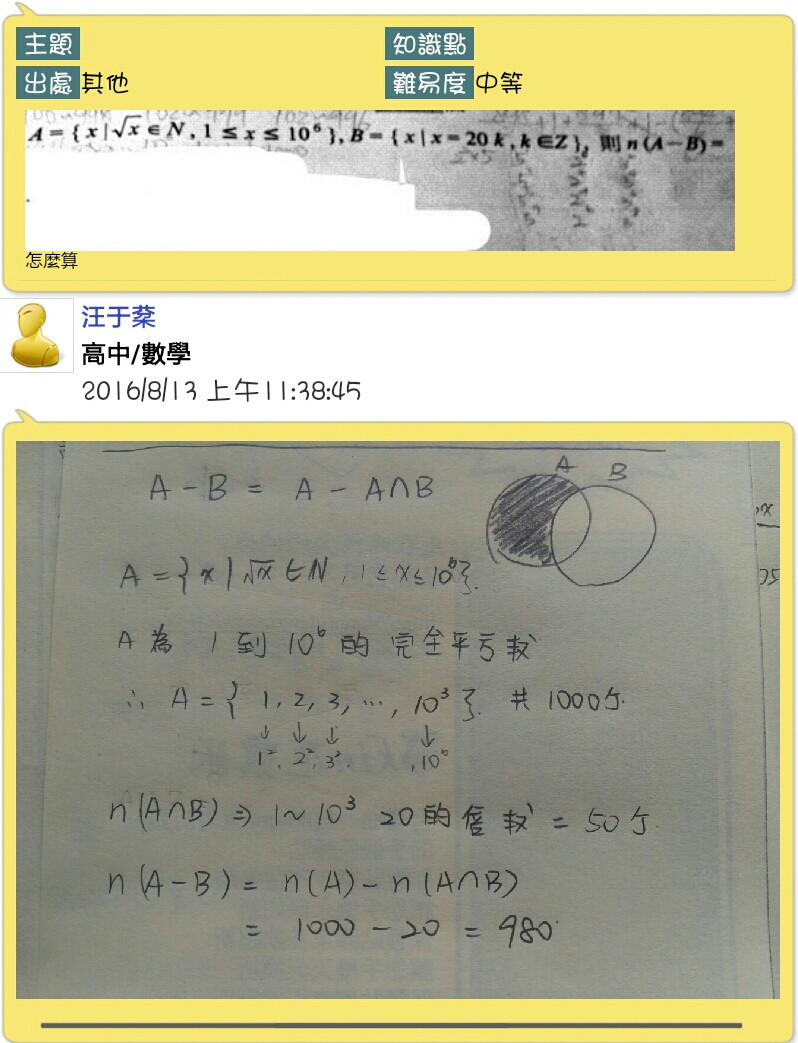 主題 知識點
出處 其他 難易度 中等
A = { x | √x ∈ N , 1 ≤ x ≤ 10⁶ }, B = { x | x = 20 k , k ∈ Z }, 則 n (A − B) =
怎麼算
汪于棻
高中/數學
2016/8/13 上午11:38:45
A B
A - B = A - A∩B
A = { x | √x ∈ N , 1 ≤ x ≤ 10⁶ }.
A 為 1 到 10⁶ 的 完全平方數
∴ A = { 1, 2, 3, ..., 10³ }. 共 1000個.
↓ ↓ ↓ ↓
1², 2², 3², , 10⁶
n(A∩B) ⇒ 1~10³ 20的倍數 = 50個.
n(A-B) = n(A) - n(A∩B)
= 1000 - 20 = 980.